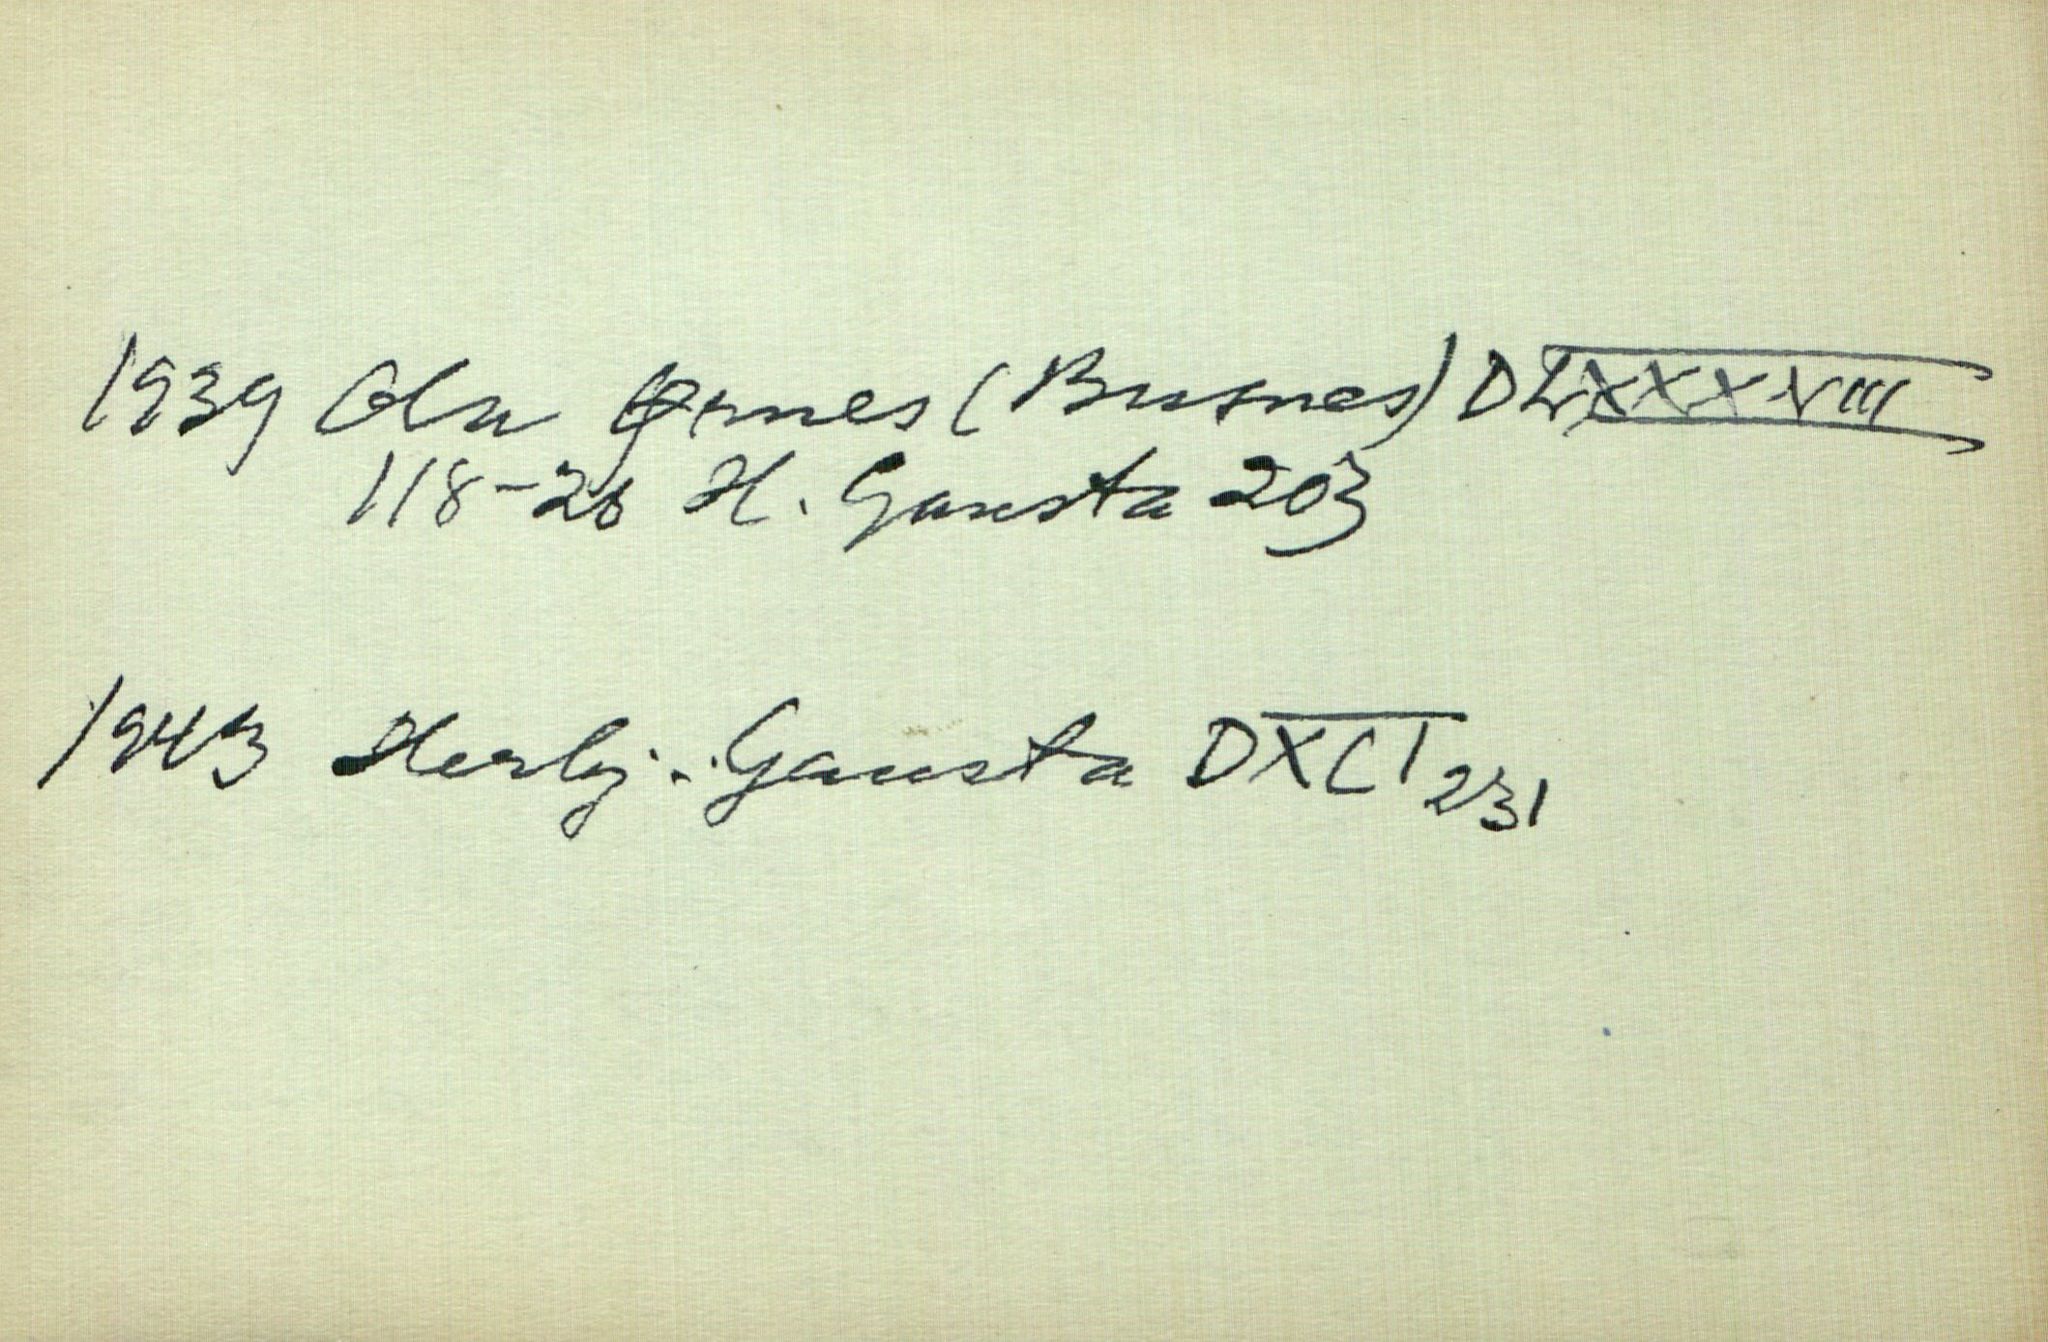 1939 Ola Ørnes (Busnes) DLXXXXVIII
118-26 H. Gausta 203
1943 Herbj. Gausta DXCI 231